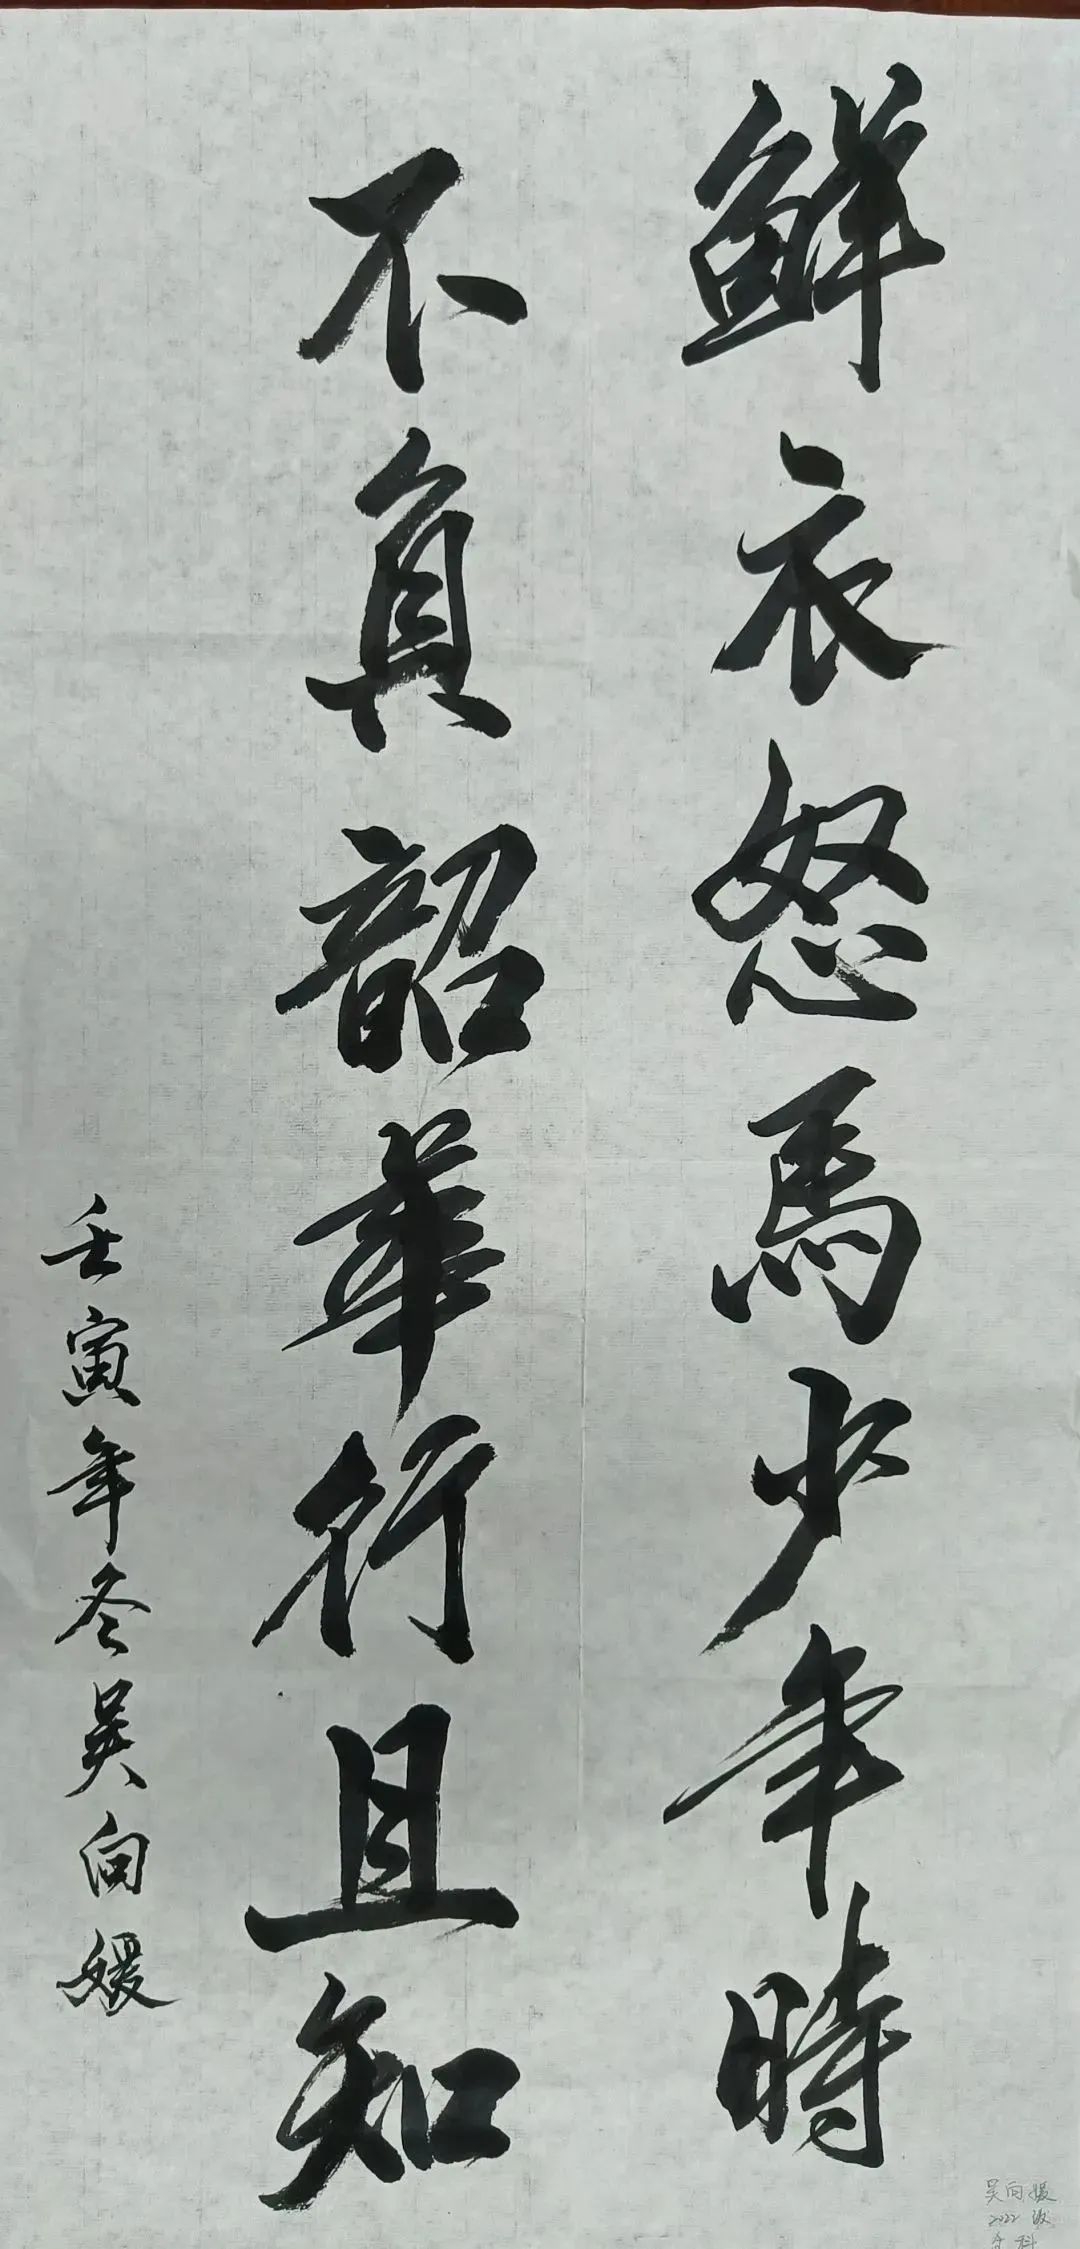 鲜衣怒馬少年時
不負韶華行且知
壬寅年冬吴向媛
吴向媛
2022级